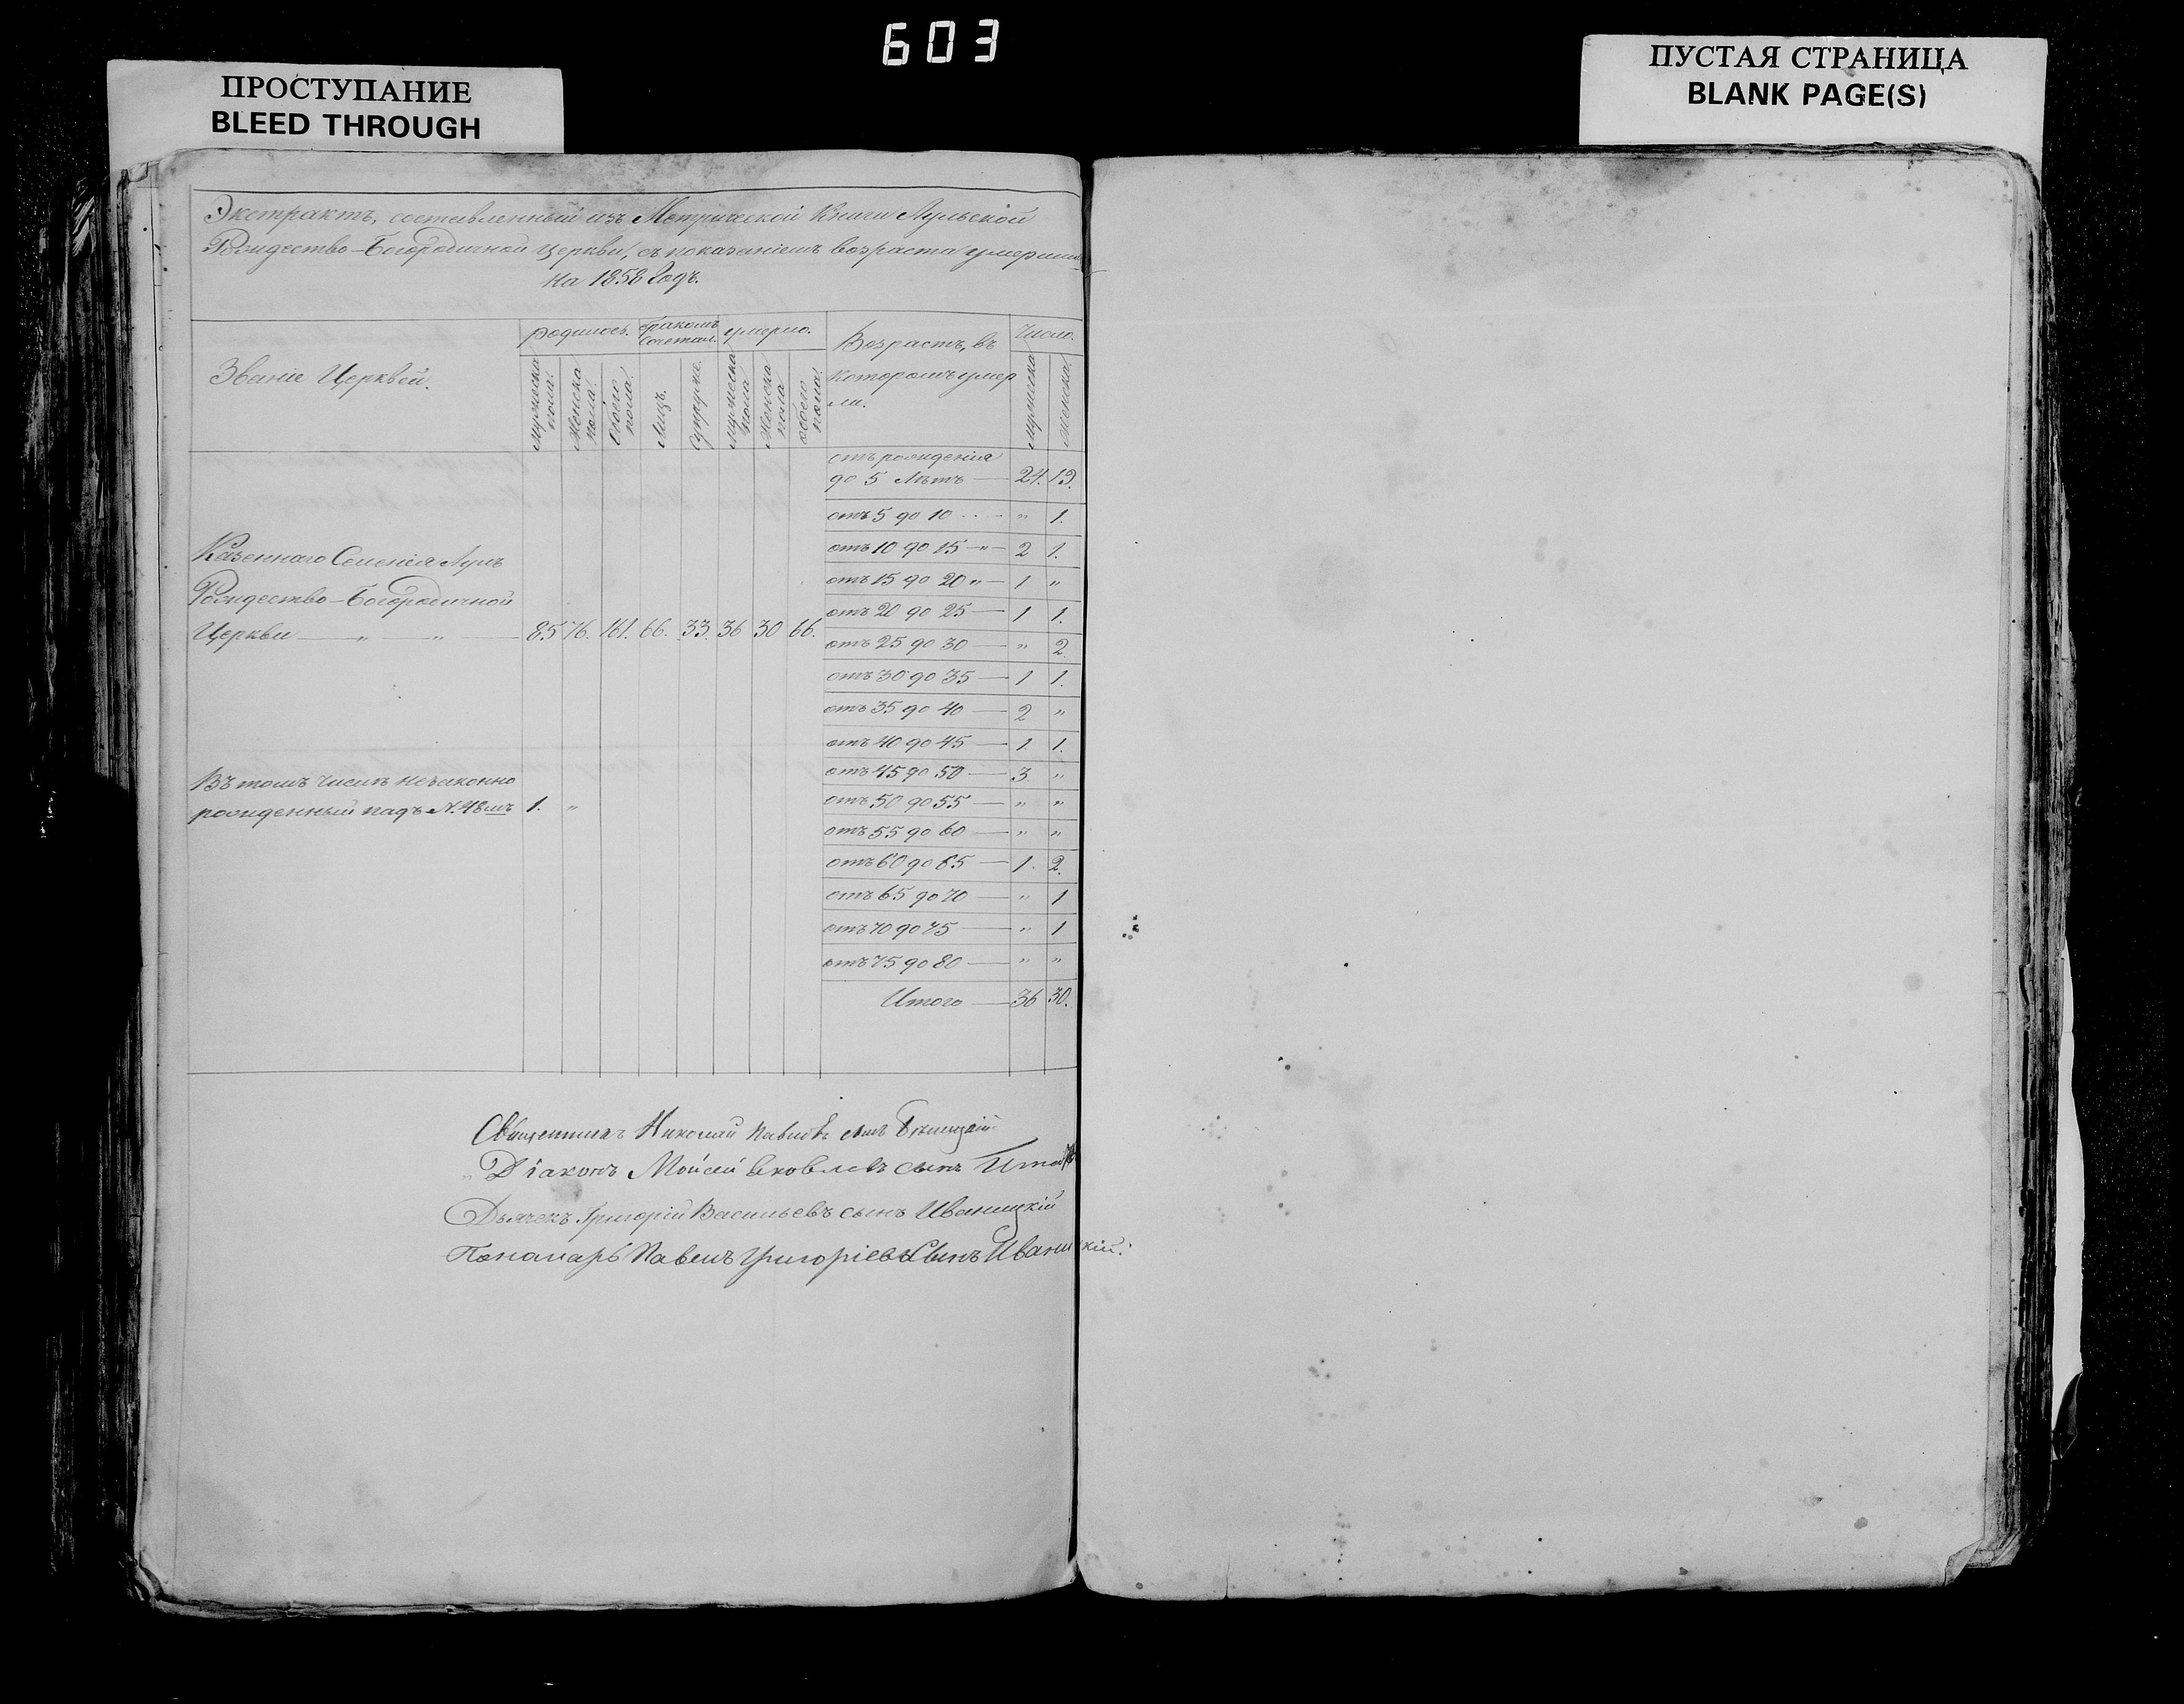 603
ПРОСТУПАНИЕ
BLEED THROUGH
ПУСТАЯ СТРАНИЦА
BLANK PAGE(S)
Экстрактъ, составленный изъ Метрической Книги Лульской
Рождество-Богородичной Церкви, съ показаніемъ возраста умерши
На 1858 Годъ.
Званіе Церквей.
родилось.
бракомъ сочетал.
умерло.
Возрастъ, въ
которомъ умер
ли.
Число.
мужеска пола.
Женска пола.
Обоего пола.
Лицъ.
супруж.
мужеска пола
Женска пола
обоего пола.
мужеска
женска.
отъ рожденія
до 5 Лѣтъ — 24. 19.
отъ 5 до 10 " 1.
отъ 10 до 15 — " — 2 1.
отъ 15 до 20 " — 1 "
отъ 20 до 25 — 1 1.
отъ 25 до 30 — " 2.
отъ 30 до 35 — 1 1.
отъ 35 до 40 — 2 "
отъ 40 до 45 — 1. 1.
отъ 45 до 50 — 3 "
отъ 50 до 55 — " "
отъ 55 до 60 — " "
отъ 60 до 65 — 1. 2.
отъ 65 до 70 — " 1
отъ 70 до 75 — " 1
отъ 75 до 80 — " "
Итого — 36 30.
Казеннаго Селенія Лулъ
Рождество-Богородичной
Церкви — " — " — 85 76. 161. 66. 33. 36 30 66.
Въ томъ числѣ незаконно
рожденный надъ N. 48мъ 1. "
Священникъ Николай Павловъ сынъ
Діаконъ Моисей Яковлевъ сынъ
Дьячекъ Григорій Васильевъ сынъ Иваницкій
Пономарь Павелъ Григоріевъ Сынъ Иваницкій.